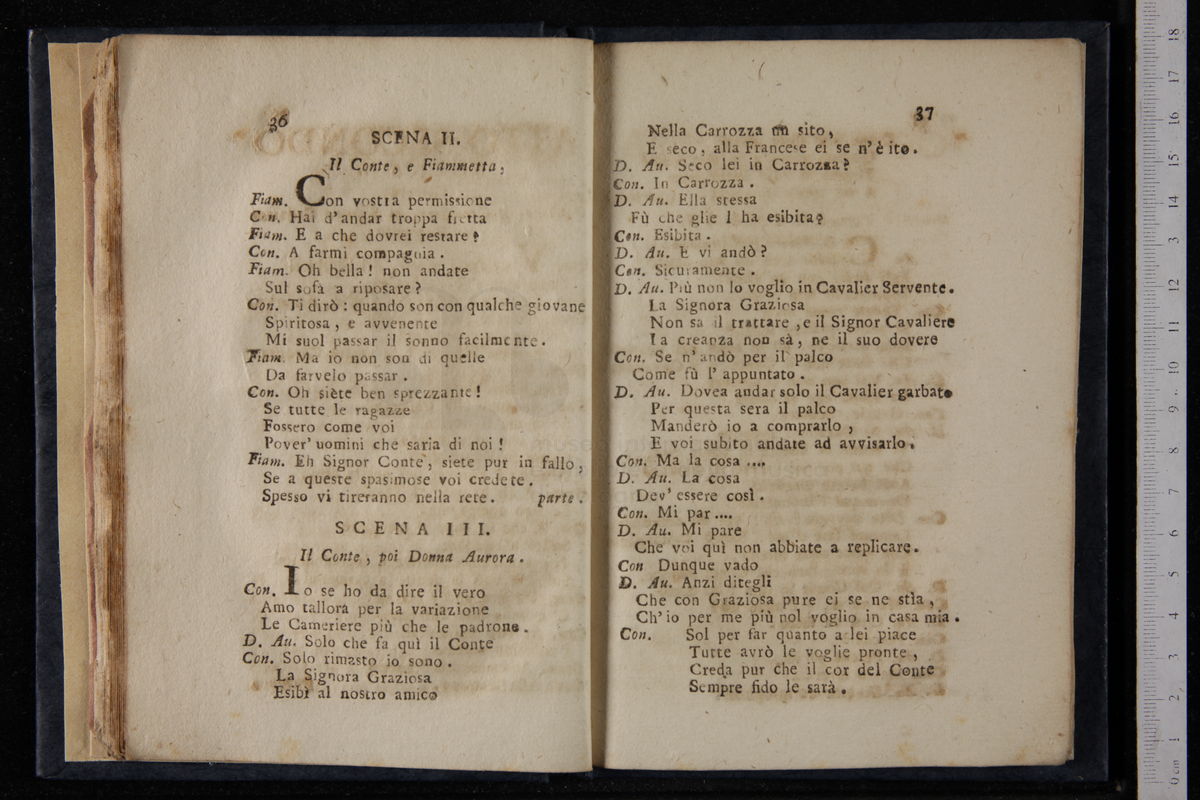 36
SCENA II.
Il Conte, e Fiammetta,
Fiam. Con vostra permissione
Con. Hai d'andar troppa fretta
Fiam. E a che dovrei restare?
Con. A farmi compagnia.
Fiam. Oh bella! non andate
Sul sofà a riposare?
Con. Ti dirò: quando son con qualche giovane
Spiritosa, e avvenente
Mi suol passar il sonno facilmente.
Fiam. Ma io non son di quelle
Da farvelo passar.
Con. Oh siète ben sprezzante!
Se tutte le ragazze
Fossero come voi
Pover' uomini che saria di noi!
Fiam. Eh Signor Conte, siete pur in fallo,
Se a queste spasimose voi credete.
Spesso vi tireranno nella rete. parte.
SCENA III.
Il Conte, poi Donna Aurora.
Con. Io se ho da dire il vero
Amo tallora per la variazione
Le Cameriere più che le padrone.
D. Au. Solo che fa quì il Conte
Con. Solo rimasto io sono.
La Signora Graziosa
Esibì al nostro amico
37
Nella Carrozza un sito,
E seco, alla Francese ei se n'è ito.
D. Au. Seco lei in Carrozza?
Con. In Carrozza.
D. Au. Ella stessa
Fù che glie l ha esibita?
Con. Esibita.
D. Au. E vi andò?
Con. Sicuramente.
D. Au. Più non lo voglio in Cavalier Servente.
La Signora Graziosa
Non sa il trattare, e il Signor Cavaliere
La creanza non sà, ne il suo dovere
Con. Se n'andò per il palco
Come fù l' appuntato.
D. Au. Dovea andar solo il Cavalier garbato
Per questa sera il palco
Manderò io a comprarlo,
E voi subito andate ad avvisarlo.
Con. Ma la cosa ....
D. Au. La cosa
Dev' essere così.
Con. Mi par....
D. Au. Mi pare
Che voi quì non abbiate a replicare.
Con Dunque vado
D. Au. Anzi ditegli
Che con Graziosa pure ei se ne stìa,
Ch'io per me più nol voglio in casa mia.
Con. Sol per far quanto a lei piace
Tutte avrò le voglie pronte,
Creda pur che il cor del Conte
Sempre fido le sarà.
0 cm 1 2 3 4 5 6 7 8 9 10 11 12 13 14 15 16 17 18